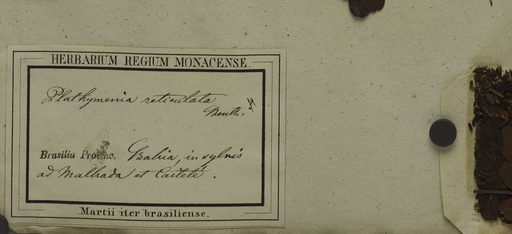 HERBARIUM REGIUM MONACENSE.
Plathymenia reticulata
Benth.
Brasilia Provinc. Bahia, in sylvis
ad Malhada et Caiteté.
Martii iter brasiliense.